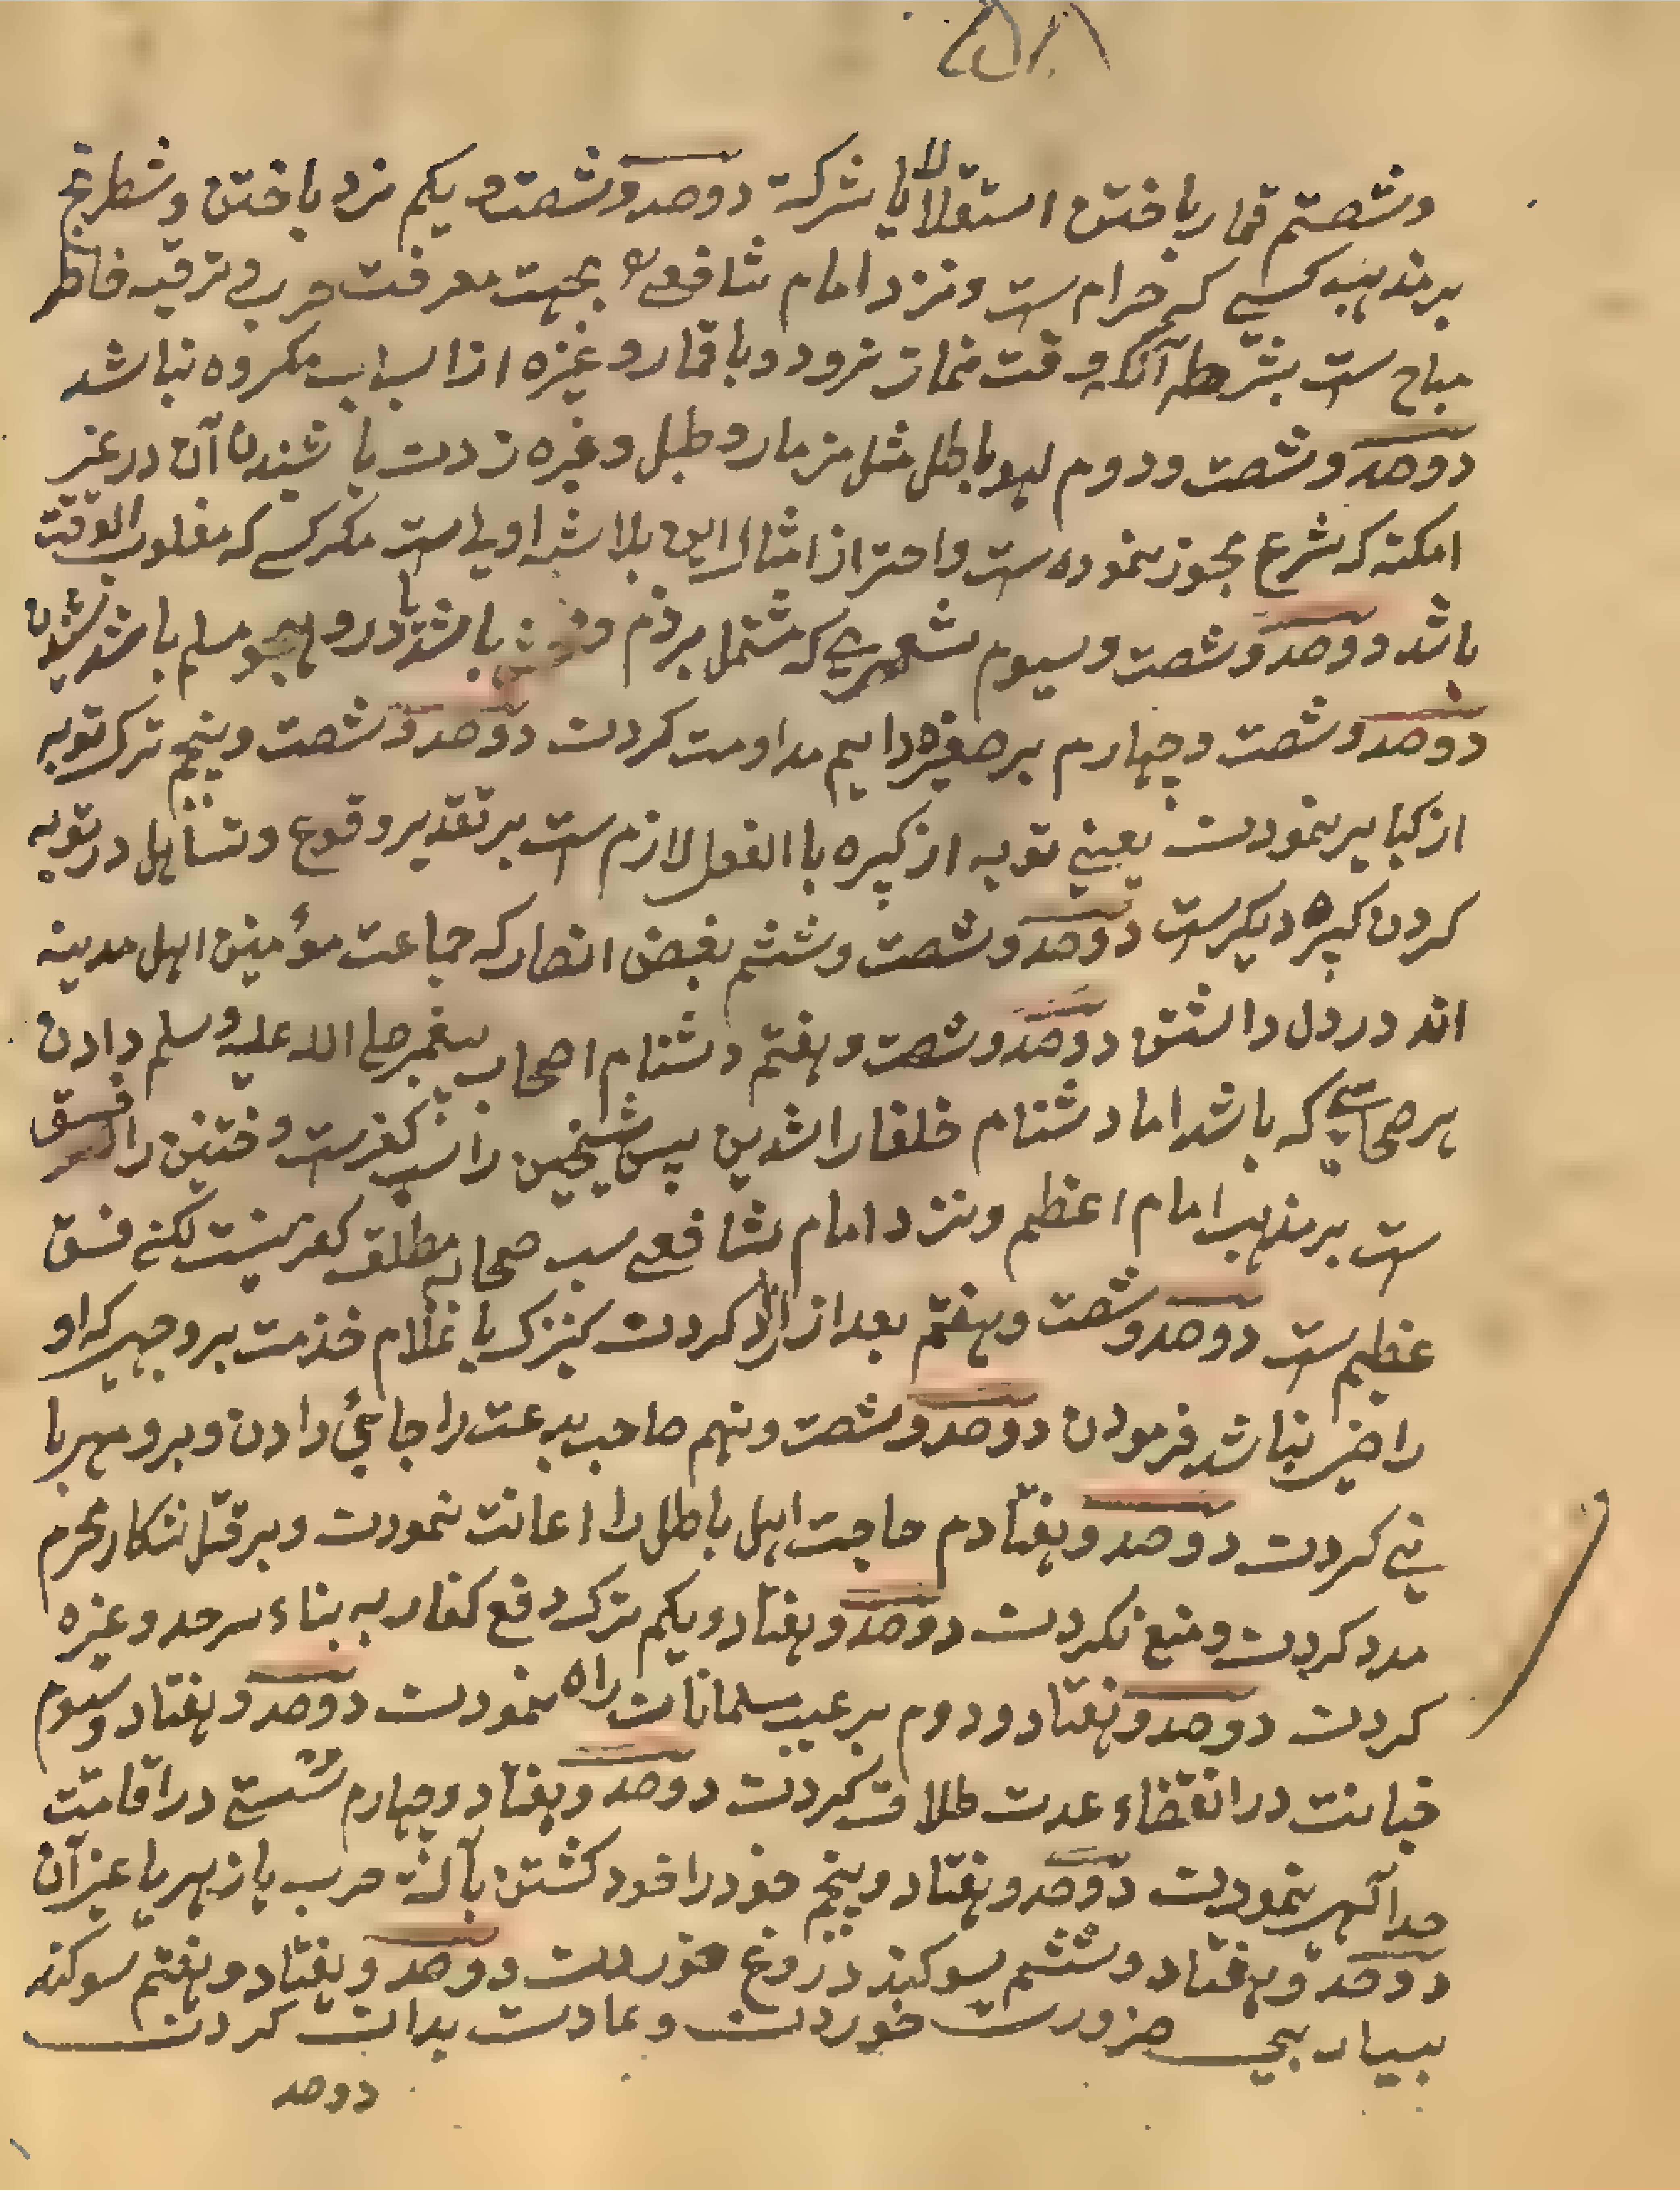 ۵۸
وشصتم قمار باختن استقلالا یا شرکة دوصد وشصت و یکم نرد باختن و شطرنج
بر مذہب کسے کہ حرام ست ونزد امام شافعے بجہت معرفت حرب و ترفیہ خاطر
مباح ست بشرطہ آنکہ وقت نماز نرود و با قمار و غیرہ از اسباب مکروہ نباشد
دوصد وشصت ودوم لہو باطل مثل مزمار و طبل و غیرہ زدن یا شنیدن آن در غیر
امکنہ کہ شرع تجویز نمودہ ست واحتراز امثال این بلا شبہ اولے ست مکر کسے کہ مغلوب الوقت
باشد دوصد وشصت وسیوم شعریکہ مشتمل بر ذم و باشد یا در و ہجو مسلم باشد شنیدن
دوصد وشصت وچہارم بر صغیرہ دایم مداومت کردن دوصد وشصت وپنجم ترک توبہ
از کبایر نمودن یعنے توبہ از کبیرہ باالفعل لازم ست بر تقدیر وقوع وتساہل در توبہ
کردن کبیرہ دیکرست دوصد وشصت وششم بغض انصار کہ جماعت مؤمنین اہل مدینہ
اند در دل داشتن دوصد وشصت وہفتم دشنام اصحاب پیغمبر صلے اللہ علیہ وسلم دادن
ہر صحابی کہ باشد اما دشنام خلفا راشدین پس شیخین را سب کفرست وختنین را فسق
ست بر مذہب امام اعظم ونزد امام شافعے سب صحابہ مطلق کفر نیست لکن فسق
عظیم ست دوصد وشصت وہفتم بعد از آزاد کردن کنیزک یا غلام خدمت بر وجہے کہ او
راضے نباشد فرمودن دوصد وشصت ونہم صاحب بدعت را جائی دادن وبرو مہربا
نے کردن دوصد وہفتادم حاجت اہل باطل را اعانت نمودن وبر قتل شکار محرم
مدد کردن ومنع نکردن دوصد وہفتاد ویکم ترک دفع کفار بہ بناء سرحد وغیرہ
کردن دوصد وہفتاد ودوم بر عیب مسلمانان راہ نمودن دوصد وہفتاد وسیوم
خیانت در انقضاء عدت طلاق کردن دوصد وہفتاد وچہارم سستے در اقامت
حد الہی نمودن دوصد وہفتاد وپنجم خود را خود کشتن بآلت حرب یا زہر یا غیر آن
دوصد وہفتاد وششم سوکند دروغ خوردن دوصد وہفتاد وہفتم سوکند
بسیار بے ضرورت خوردن وعادت بدان کردن
دوصد